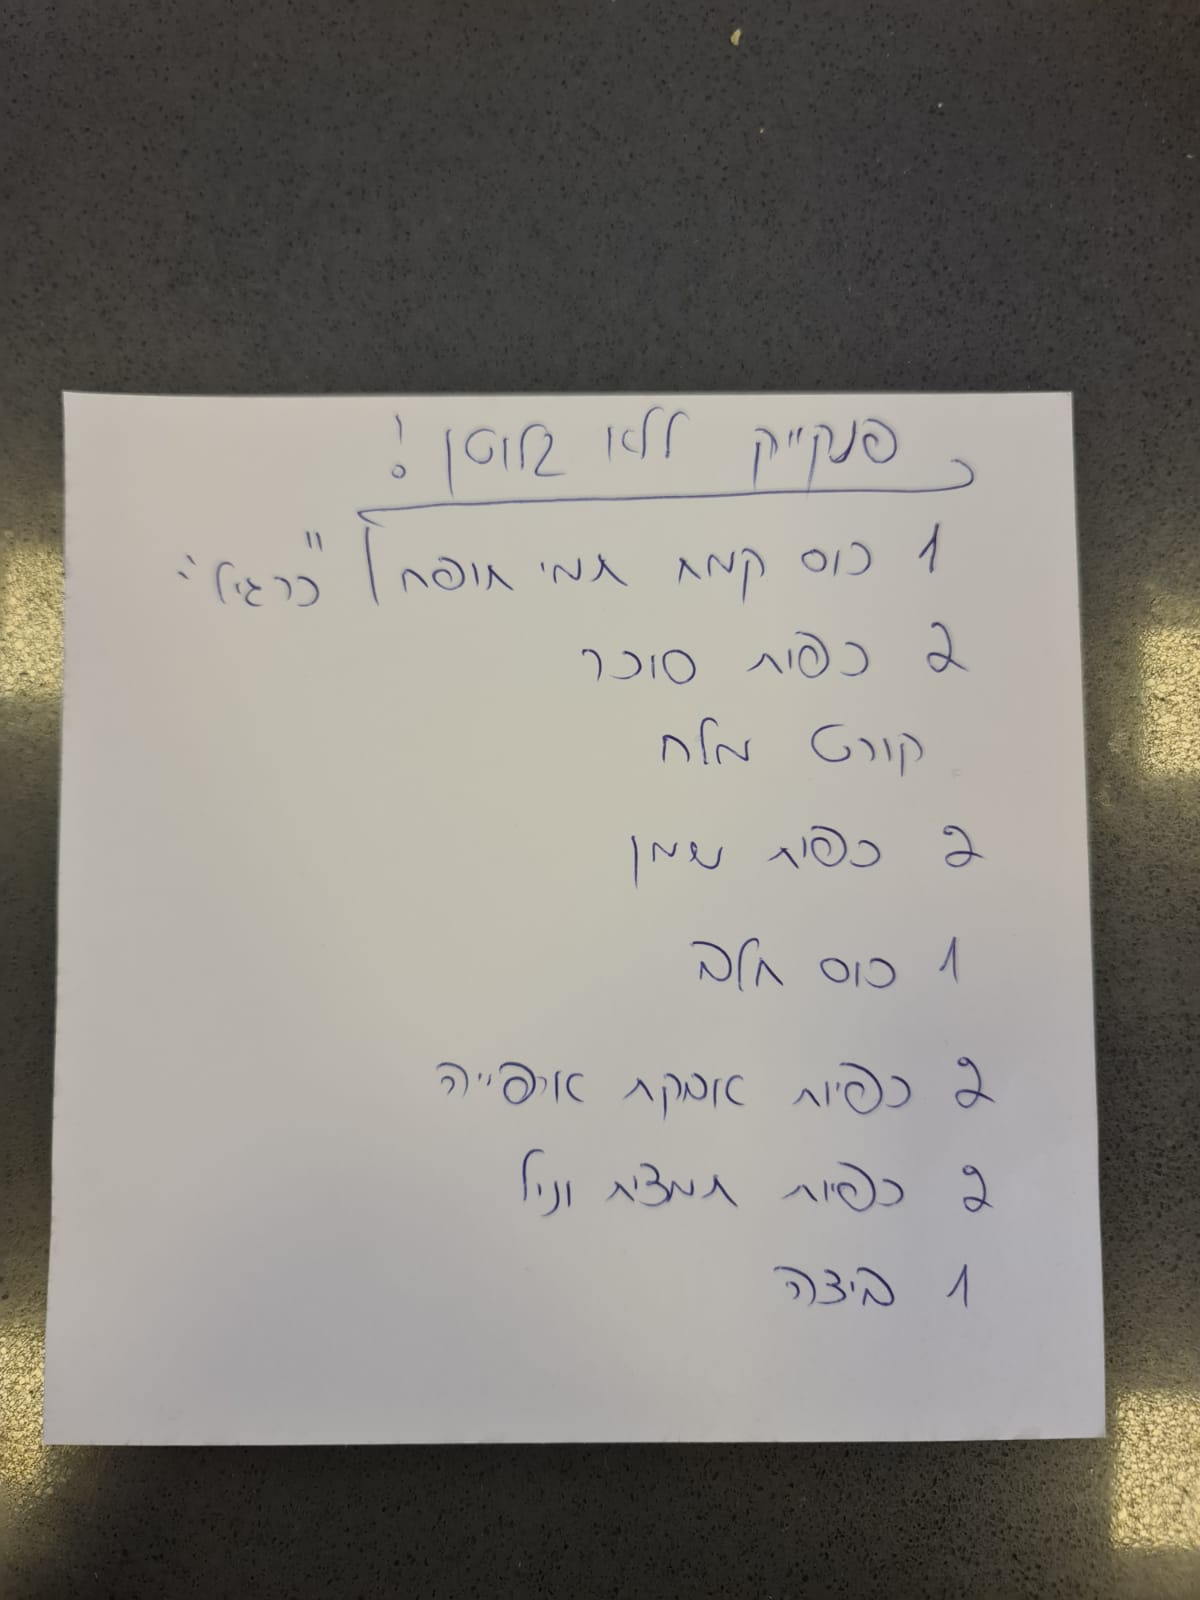 פנקייק ללא גלוטן!
1 כוס קמח תמי תופח / "כרגיל"
2 כפות סוכר
קורט מלח
2 כפות שמן
1 כוס חלב
2 כפיות אבקת אפייה
2 כפיות תמצית וניל
1 ביצה